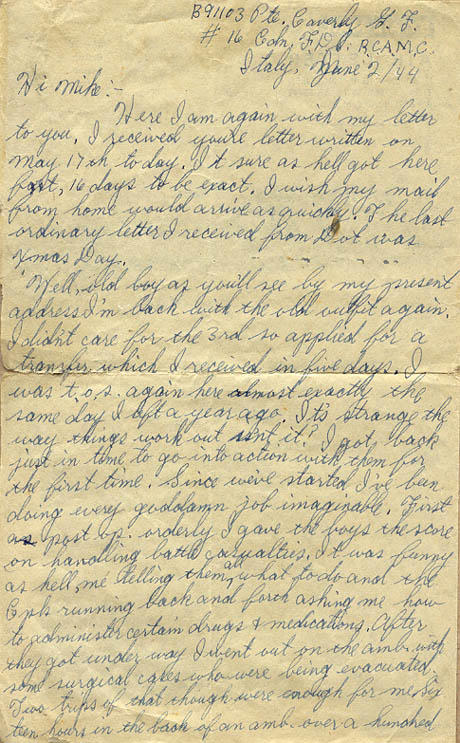 B91103 Pte. Caverly G. F.
# 16 Cdn. F.D.S. R.C.A.M.C.
Italy, June 2/44
Hi Mike:-
Here I am again with my letter
to you. I received youre letter written on
May 17th today. It sure as hell got here
fast, 16 days to be exact. I wish my mail
from home would arrive as quickly. The last
ordinary letter I received from Dot was
Xmas Day.
Well, old boy as you'll see by my present
address I'm back with the old outfit again.
I didn't care for the 3rd so applied for a
transfer which I received in five days. I
was t.o.s. again here almost exactly the
same day I left a year ago. It's strange the
way things work out isnt it? I got back
just in time to go into action with them for
the first time. Since weve started I've been
doing every goddamn job imaginable. First
as post op. orderly I gave the boys the score
on handling battle casualties. It was funny
as hell, me telling them all what to do and the
Cpls running back and forth asking me how
to administer certain drugs & medications. After
they got under way I went out on the amb. with
some surgical cases who were being evacuated.
Two trips of that though were enough for me. Six
teen hours in the back of an amb. over a hundred